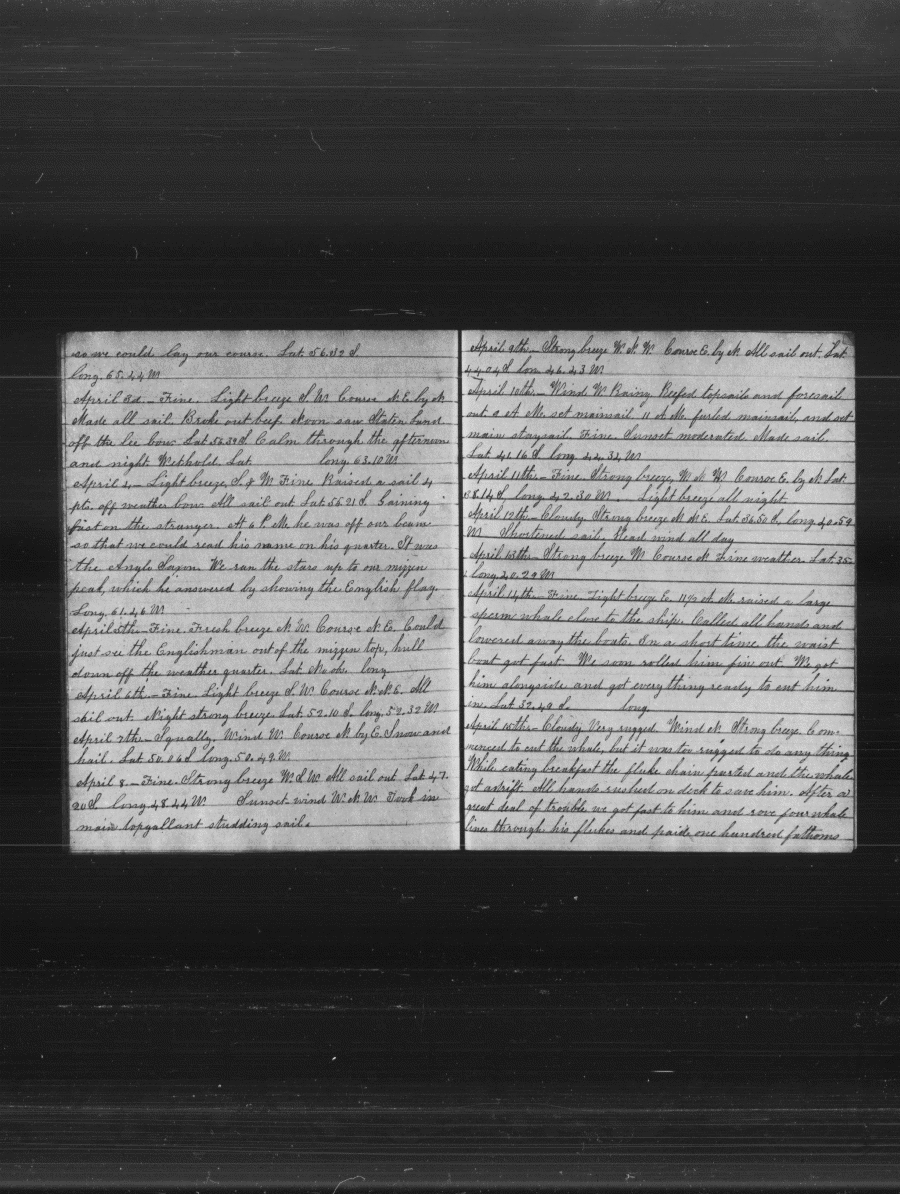 so we could lay our course. Lat. 56.32 S.
long. 65.44 W
April 3d.— Fine. Light breeze S. W. Course N. E. by N
Made all sail. Broke out beef. Noon saw Staten Land
off the lee bow. Lat. 55.39 S. Calm through the afternoon
and night. Lat. long. 63.10 W
April 4— Light breeze, S. & W. Fine Raised a sail 4
pts. off weather bow. All sail out. Lat. 55.21 S. Gaining
fast on the stranger. At 6 P. M. he was off our beam
so that we could read his name on his quarter. It was
the Anglo Saxon. We ran the stars up to our mizzen
peak, which he answered by showing the English flag.
Long. 61.46 W
April 5th— Fine. Fresh breeze N. W. Course N. E. Could
just see the Englishman out of the mizzen top, hull
down off the weather quarter. Lat. No ob. long
April 6th.— Fine. Light breeze S. W. Course N. N. E. All
sail out. Night strong breeze. Lat. 52.10 S. long. 52.32 W
April 7th— Squally. Wind W. Course N by E. Snow and
hail. Lat 50.06 S long. 50.49 W.
April 8.— Fine. Strong breeze W. S. W. All sail out. Lat 47.
20 S long 48.44 W Sunset wind W. N. W. Took in
main topgallant studding sail.
April 9th.— Strong breeze W. N. W. Course E. by N All sail out. Lat
44.04 S lon. 46.43 W
April 10th.— Wind W. Rainy. Reefed topsails and foresail
out. 9 A. M. set mainsail. 11 A. M. furled mainsail, and set
main staysail. Fine. Sunset moderated. Made sail.
Lat. 41.16 S long. 44.34 W
April 11th— Fine. Strong breeze, W. N. W. Course E. by N. Lat.
38.14 S, long. 42.30 W. Light breeze all night
April 12th— Cloudy. Strong breeze N. N. E. Lat. 36.50 S., long. 40.59
W Shortened sail. Head wind all day
April 13th— Strong breeze W. Course N. Fine weather. Lat. 35.
long. 40.29 W
April 14th— Fine. Light breeze E. 11½ A. M. raised a large
sperm whale close to the ship. Called all hands and
lowered away the boats. In a short time the waist
boat got fast. We soon rolled him fin out. We got
him alongside and got every thing ready to cut him
in. Lat. 32.49 S. long.
April 15th.— Cloudy. Very rugged. Wind N. Strong breeze. Com-
menced to cut the whale, but it was too rugged to do any thing
While eating breakfast the fluke chain parted and the whale
got adrift. All hands rushed on deck to save him. After a
great deal of trouble we got fast to him and rove four whale
lines through his flukes and paid one hundred fathoms